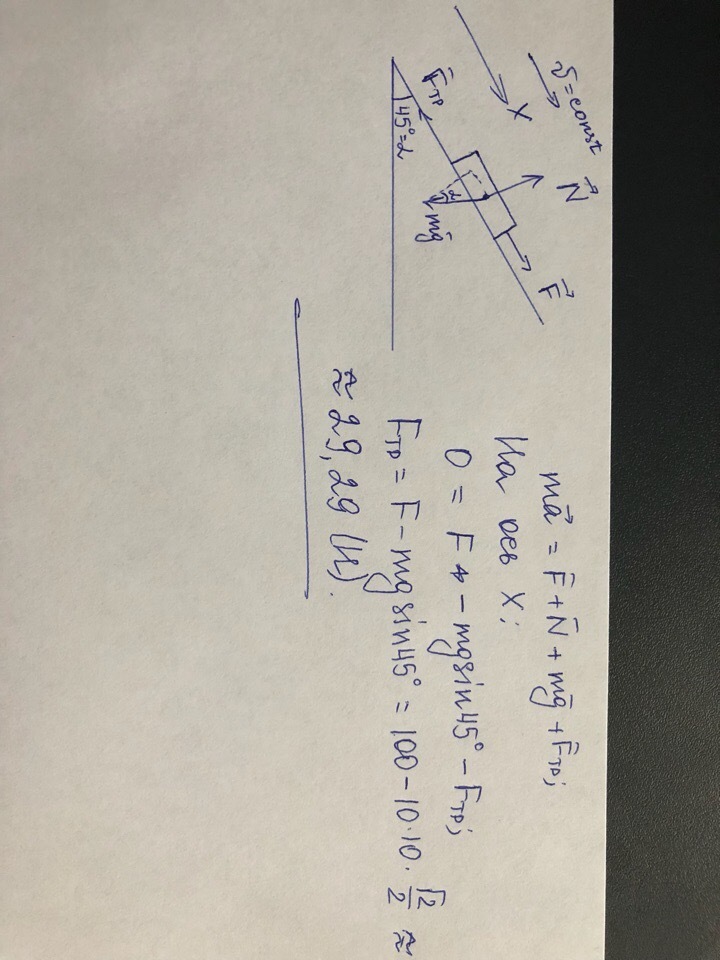 v⃗=const
X
N⃗
F⃗
F⃗тр
45°=α
α
mg⃗
ma⃗ = F⃗+N⃗+mg⃗+F⃗тр;
На ось X:
0 = F - mgsin45° - Fтр;
Fтр = F - mg sin45° = 100 - 10·10·√2/2 ≈
≈ 29,29 (Н).